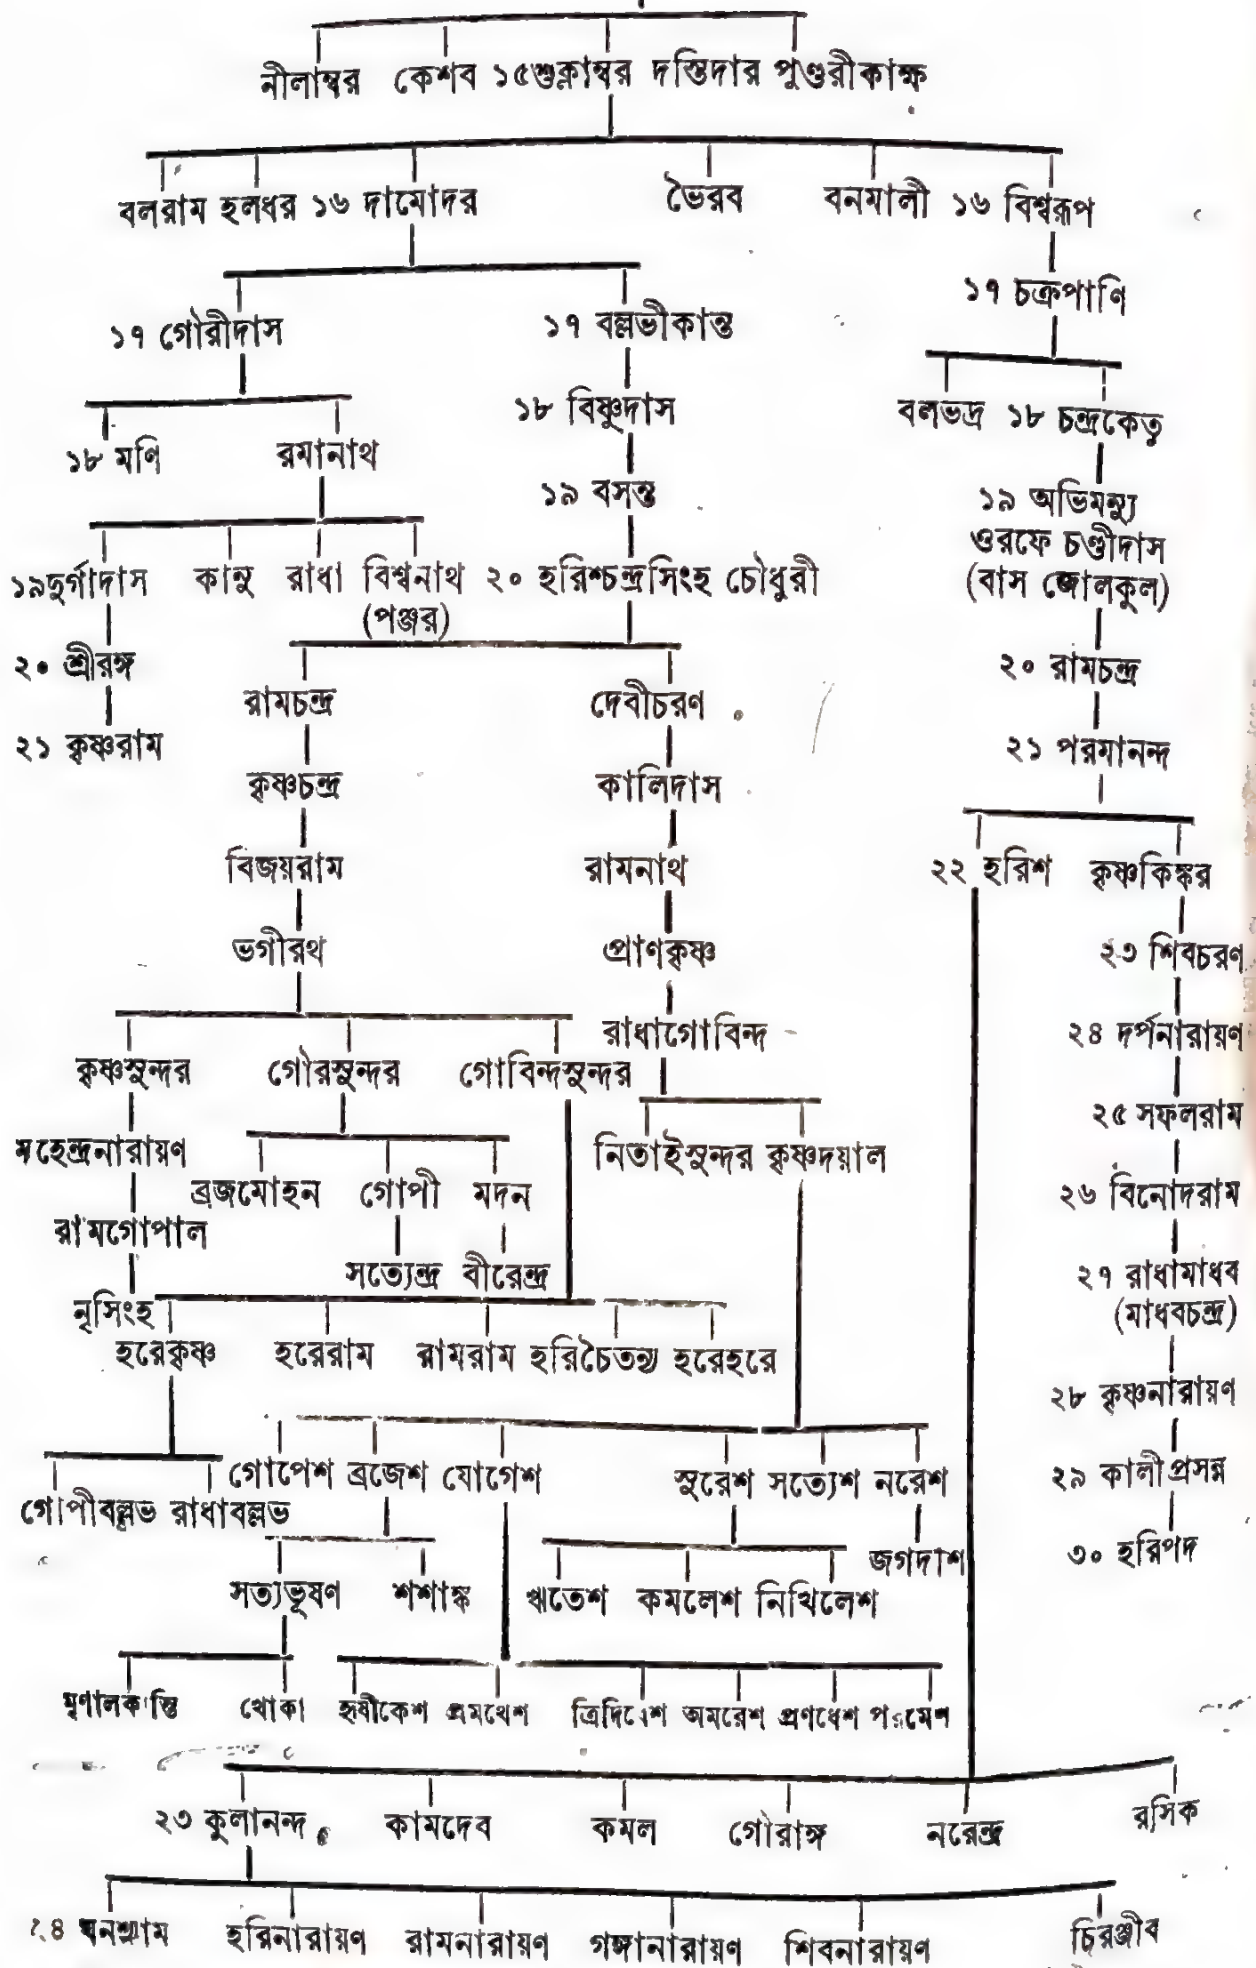 নীলাম্বর কেশব ১৫শুক্লাম্বর দস্তিদার পুণ্ডরীকাক্ষ
বলরাম হলধর ১৬ দামোদর ভৈরব বনমালী ১৬ বিশ্বরূপ
১৭ চক্রপাণি
১৭ গৌরীদাস ১৭ বল্লভীকান্ত
১৮ বিষ্ণুদাস বলভদ্র ১৮ চন্দ্রকেতু
১৮ মণি রমানাথ
১৯ বসন্ত ১৯ অভিমন্যু
ওরফে চণ্ডীদাস
১৯দুর্গাদাস কানু রাধা বিশ্বনাথ ২০ হরিশ্চন্দ্রসিংহ চৌধুরী (বাস জোলকুল)
(পঞ্জর)
২০ শ্রীরঙ্গ ২০ রামচন্দ্র
রামচন্দ্র দেবীচরণ
২১ কৃষ্ণরাম ২১ পরমানন্দ
কৃষ্ণচন্দ্র কালিদাস
বিজয়রাম রামনাথ ২২ হরিশ কৃষ্ণকিঙ্কর
ভগীরথ প্রাণকৃষ্ণ ২৩ শিবচরণ
রাধাগোবিন্দ ২৪ দর্পনারায়ণ
কৃষ্ণসুন্দর গৌরসুন্দর গোবিন্দসুন্দর
২৫ সফলরাম
মহেন্দ্রনারায়ণ নিতাইসুন্দর কৃষ্ণদয়াল
ব্রজমোহন গোপী মদন ২৬ বিনোদরাম
রামগোপাল
সত্যেন্দ্র বীরেন্দ্র ২৭ রাধামাধব
নৃসিংহ (মাধবচন্দ্র)
হরেকৃষ্ণ হরেরাম রামরাম হরিচৈতন্য হরেহরে
২৮ কৃষ্ণনারায়ণ
গোপেশ ব্রজেশ যোগেশ সুরেশ সত্যেশ নরেশ ২৯ কালীপ্রসন্ন
গোপীবল্লভ রাধাবল্লভ
জগদীশ ৩০ হরিপদ
সত্যভূষণ শশাঙ্ক ঋতেশ কমলেশ নিখিলেশ
মৃণালকান্তি খোকা হৃষীকেশ প্রমথেশ ত্রিদিবেশ অমরেশ প্রণধেশ পরমেশ
২৩ কুলানন্দ কামদেব কমল গৌরাঙ্গ নরেন্দ্র রসিক
২৪ ঘনশ্যাম হরিনারায়ণ রামনারায়ণ গঙ্গানারায়ণ শিবনারায়ণ চিরঞ্জীব